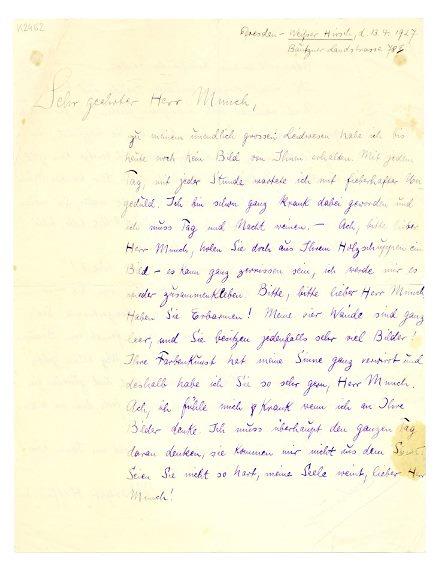 K2462
Dresden - Weißer Hirsch, d. 13.4. 1927
Bautzner Landstrasse
Sehr geehrter Herr Munch,
zu meinem unendlich grossen Leidwesen habe ich bis
heute noch kein Bild von Ihnen erhalten. Mit jedem
Tag, mit jeder Stunde wartete ich mit fieberhafter Un-
geduld. Ich bin schon ganz krank dabei geworden und
ich muss Tag und Nacht weinen. - Ach, bitte lieber
Herr Munch, holen Sie doch aus Ihrem Holzschuppen ein
Bild - es kann ganz zerrissen sein, ich werde mir es
wieder zusammenkleben. Bitte, bitte lieber Herr Munch
Haben Sie Erbarmen! Meine vier Wände sind ganz
leer, und Sie besitzen jedenfalls sehr viel Bilder!
Ihre Farbenkunst hat meine Sinne ganz verwirrt und
deshalb habe ich Sie so sehr gern, Herr Munch.
Ach, ich fühle mich krank wenn ich an Ihre
Bilder denke. Ich muss überhaupt den ganzen Tag
daran denken, sie kommen mir nicht aus dem Sinn.
Seien Sie nicht so hart, meine Seele weint, lieber Herr
Munch!